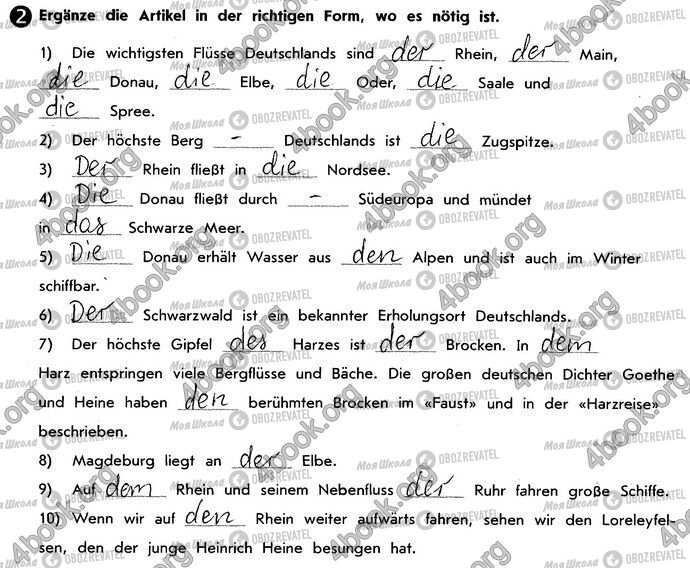 2 Ergänze die Artikel in der richtigen Form, wo es nötig ist.
1) Die wichtigsten Flüsse Deutschlands sind der Rhein, der Main,
die Donau, die Elbe, die Oder, die Saale und
die Spree.
2) Der höchste Berg - Deutschlands ist die Zugspitze.
3) Der Rhein fließt in die Nordsee.
4) Die Donau fließt durch - Südeuropa und mündet
in das Schwarze Meer.
5) Die Donau erhält Wasser aus den Alpen und ist auch im Winter
schiffbar.
6) Der Schwarzwald ist ein bekannter Erholungsort Deutschlands.
7) Der höchste Gipfel des Harzes ist der Brocken. In dem
Harz entspringen viele Bergflüsse und Bäche. Die großen deutschen Dichter Goethe
und Heine haben den berühmten Brocken im «Faust» und in der «Harzreise»
beschrieben.
8) Magdeburg liegt an der Elbe.
9) Auf dem Rhein und seinem Nebenfluss der Ruhr fahren große Schiffe.
10) Wenn wir auf den Rhein weiter aufwärts fahren, sehen wir den Loreleyfel-
sen, den der junge Heinrich Heine besungen hat.